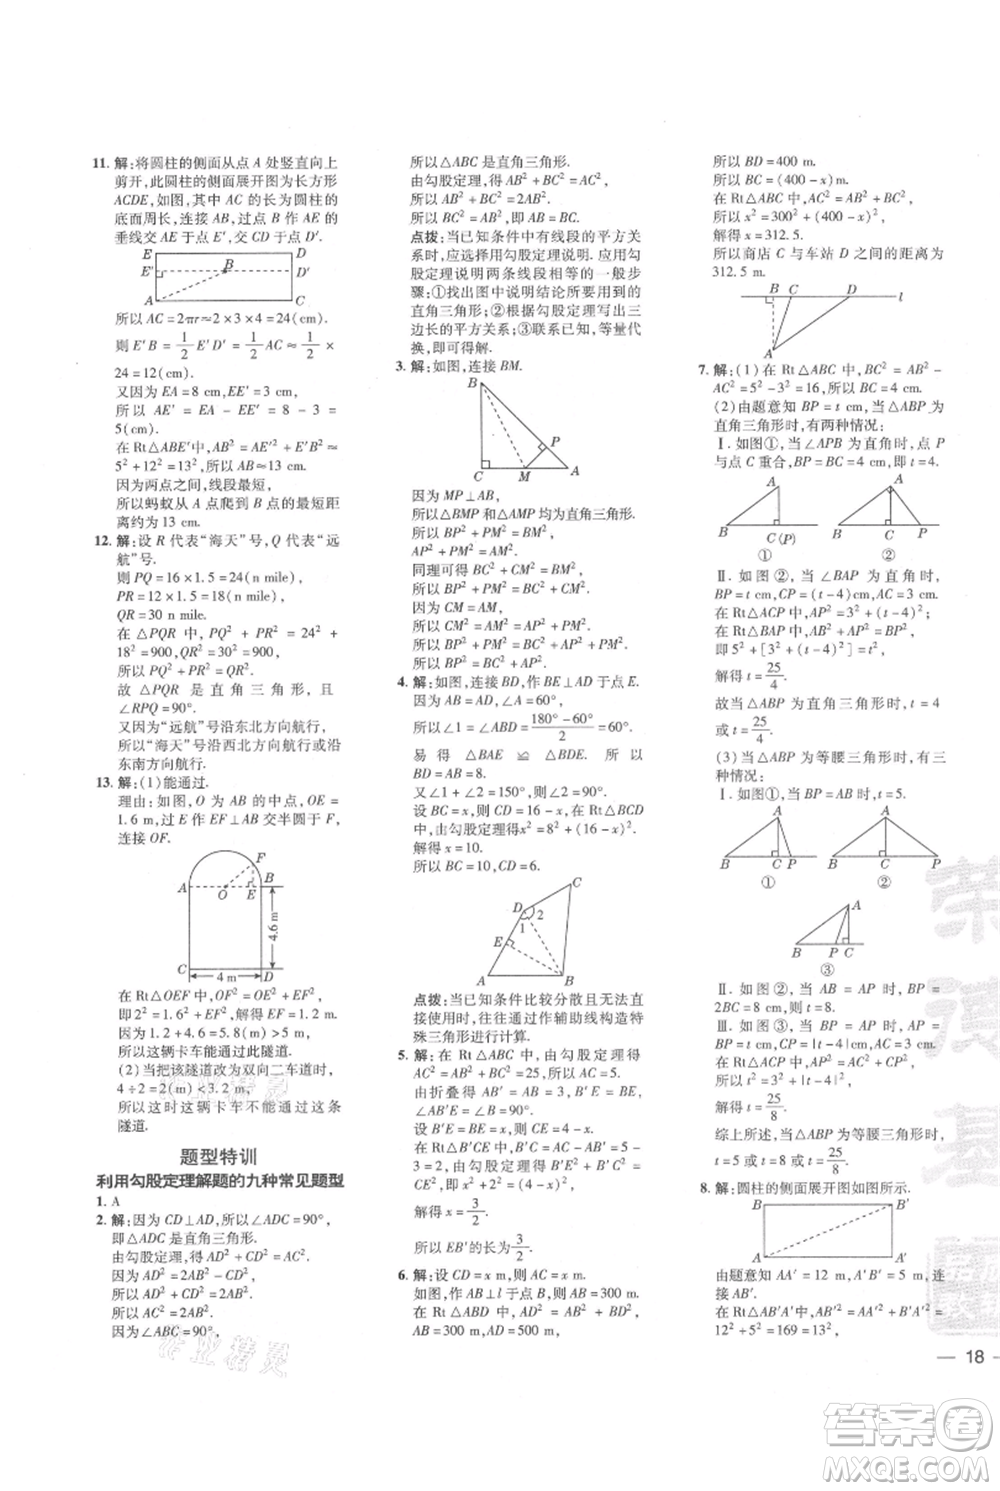 11. 解:将圆柱的侧面从点 A 处竖直向上
剪开,此圆柱的侧面展开图为长方形
ACDE,如图,其中 AC 的长为圆柱的
底面周长,连接 AB,过点 B 作 AE 的
垂线交 AE 于点 E′,交 CD 于点 D′.
E D
E′ B D′
A C
所以 AC=2πr≈2×3×4=24(cm).
则 E′B=1/2 E′D′=1/2 AC≈1/2×
24=12(cm).
又因为 EA=8 cm,EE′=3 cm,
所以 AE′=EA-EE′=8-3=
5(cm).
在 Rt△ABE′中,AB²=AE′²+BE′²≈
5²+12²=13²,所以 AB≈13 cm.
因为两点之间,线段最短,
所以蚂蚁从 A 点爬到 B 点的最短距
离约为 13 cm.
12. 解:设 R 代表“海天”号,Q 代表“远
航”号.
则 PQ=16×1.5=24(n mile),
PR=12×1.5=18(n mile),
QR=30 n mile.
在 △PQR 中,PQ²+PR²=24²+
18²=900,QR²=30²=900,
所以 PQ²+PR²=QR².
故 △PQR 是直角三角形,且
∠RPQ=90°.
又因为“远航”号沿东北方向航行,
所以“海天”号沿西北方向航行或沿
东南方向航行.
13. 解:(1)能通过.
理由:如图,O 为 AB 的中点,OE=
1.6 m,过 E 作 EF⊥AB 交半圆于 F,
连接 OF.
F
A O E B
4.6 m
C 4 m D
在 Rt△OEF 中,OF²=OE²+EF²,
即 2²=1.6²+EF²,所以 EF=1.2 m.
因为 1.2+4.6=5.8(m)>5.7 m,
所以这辆卡车能通过此隧道.
(2)当把该隧道改为双向二车道时,
4÷2=2(m)<3.2 m,
所以这时这辆卡车不能通过此
隧道.
题型特训
利用勾股定理解题的九种常见题型
1. A
2. 解:因为 CD⊥AD,所以∠ADC=90°,
即△ADC 是直角三角形.
由勾股定理,得 AD²+CD²=AC².
因为 AD²+CD²=2AB²,
所以 AC²=2AB².
因为∠ABC=90°,
所以 △ABC 是直角三角形.
由勾股定理,得 AB²+BC²=AC²,
所以 AB²+BC²=2AB².
所以 BC²=AB²,即 AB=BC.
点拨:当已知条件中有线段的平方关系
时,应选用勾股定理说明. 应用勾
股定理说明两条线段相等的一般步
骤:①找出图中说明结论所需要的
直角三角形;②根据勾股定理写出三
边长的平方关系;③联系已知,等量代
换,即可得解.
3. 解:如图,连接 BM.
B
P
C M A
因为 MP⊥AB,
所以△BMP 和△AMP 均为直角三角形.
所以 BP²+PM²=BM²,
AP²+PM²=AM².
同理可得 BC²+CM²=BM².
所以 BP²+PM²=BC²+CM².
因为 CM=AM,
所以 CM²=AM²=AP²+PM².
所以 BP²+PM²=BC²+AP²+PM².
所以 BP²=BC²+AP².
4. 解:如图,连接 BD,作 BE⊥AD 于点 E.
因为 AB=AD,∠A=60°,
所以∠1=∠ABD=(180°-60°)/2=60°.
易得 △BAE ≌ △BDE. 所以
BD=AB=8.
又∠1+∠2=150°,则∠2=90°.
设 BC=x,则 CD=16-x,在 Rt△BCD
中,由勾股定理得x²=8²+(16-x)²,
解得 x=10.
所以 BC=10,CD=6.
C
D 2
1
E
A B
点拨:当已知条件比较分散且无法直
接使用时,往往通过作辅助线构造特
殊三角形进行计算.
5. 解:在 Rt△ABC 中,由勾股定理得
AC²=AB²+BC²=25,所以 AC=5.
由折叠得 AB′=AB=3,B′E=BE,
∠AB′E=∠B=90°.
所以 B′C=2,∠CB′E=90°.
设 B′E=BE=x,则 CE=4-x.
在 Rt△B′CE 中,B′E²+B′C²=
CE²,所以 x²+2²=(4-x)².
解得 x=3/2.
所以 EB′的长为3/2.
6. 解:设 CD=x m,则 AC=x m.
如图,作 AB⊥l 于点 B,则∠ABD=90°.
在 Rt△ABD 中,因为 AB²+BD²=AD²,
AB=300 m,AD=500 m,
所以 BD=400 m.
所以 BC=(400-x)m.
在 Rt△ABC 中,因为 AC²=AB²+BC²,
所以 x²=300²+(400-x)².
解得 x=312.5.
所以商店 C 与车站 D 之间的距离为
312.5 m.
B C D l
A
7. 解:(1)在 Rt△ABC 中,BC²=AB²-
AC²=5²-3²=16,所以 BC=4 cm.
(2)由题意知 BP=t cm,当△ABP 为
直角三角形时,有两种情况:
Ⅰ. 如图①,当∠APB 为直角时,点 P
与点 C 重合,BP=BC=4 cm,即 t=4.
A A
B C(P) B C P
① ②
Ⅱ. 如图②,当 ∠BAP 为直角时,
BP=t cm,CP=(t-4)cm,AC=3 cm.
在 Rt△ACP 中,AP²=3²+(t-4)²;
在 Rt△BAP 中,AB²+AP²=BP²,
即 5²+[3²+(t-4)²]=t²,
解得 t=25/4.
故当△ABP 为直角三角形时,t=4
或 t=25/4.
(3)当△ABP 为等腰三角形时,有三
种情况:
Ⅰ. 如图①,当 BP=AB 时,t=5.
A A
B C P B C P
① ②
A
B P C
③
Ⅱ. 如图②,当 AB=AP 时,BP=
2BC=8 cm,所以 t=8.
Ⅲ. 如图③,当 BP=AP 时,AP=
BP=t cm,CP=|t-4|cm,AC=3 cm.
在 Rt△ACP 中,AP²=AC²+CP²,
所以 t²=3²+(t-4)².
解得 t=25/8.
综上所述,当△ABP 为等腰三角形时,
t=5 或 t=8 或 t=25/8.
8. 解:圆柱的侧面展开图如图所示.
B B′
A A′
由题意知 AA′=12 m,A′B′=5 m,连
接 AB′.
在 Rt△AA′B′中,AB′²=AA′²+A′B′²=
12²+5²=169=13²,所以 AB′=13 m.
18
作业精灵
答案卷
MXQE.COM